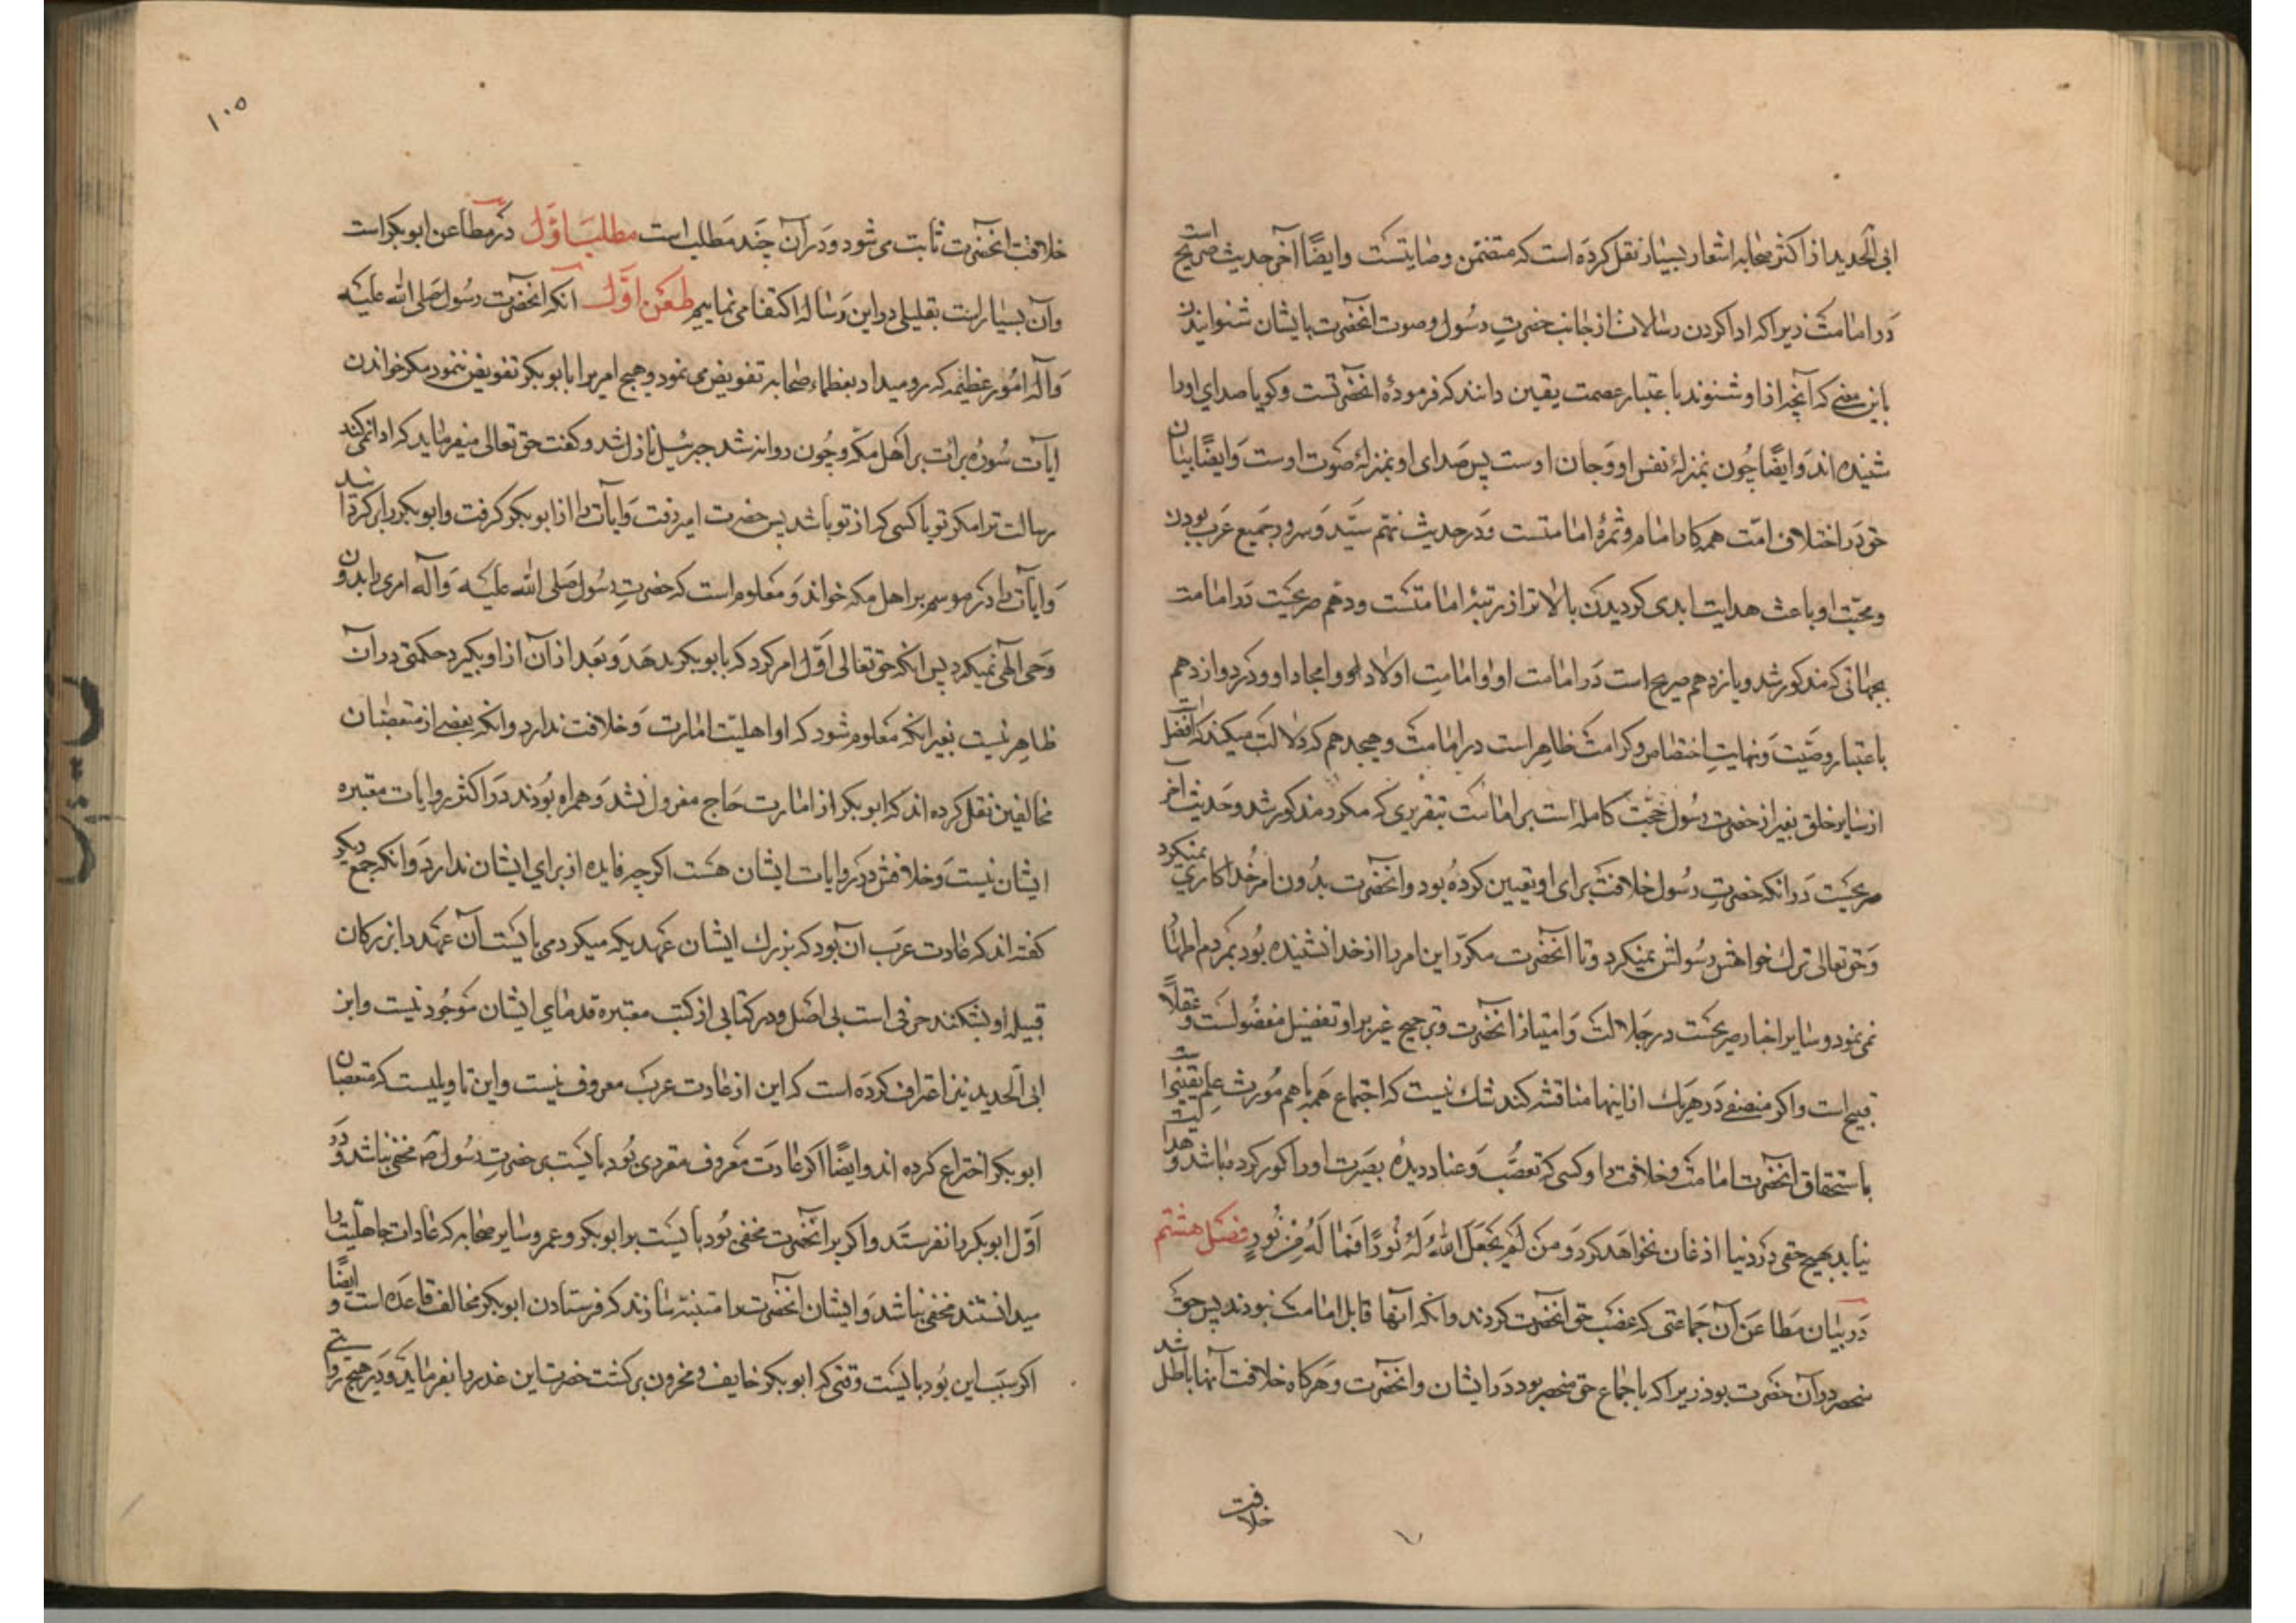 ابی الحدید از اکثر صحابه اشعار بسیار نقل کرده است که متضمن وصایتست وایضًا آخر حدیث صریح است
در امامت زیرا که ادا کردن رسالات از جانب حضرتِ رسُول وصوت آنحضرت بایشان شنوانیدن
باین معنی که آنچه از او شنوند باعتبار عصمت یقین دانند که فرمودهٔ آنحضرتست وکویا صدای اورا
شنیده اند وایضًا چُون بمنزلهٔ نفس او وجان اوست پس صدای او بمنزلهٔ صوت اوست وایضًا بیان
حق در اختلاف امّت همه کار امام وثمرهٔ امامتست ودر حدیث نهم سیّد وسرور جمیع عرب بودن
ومحبّت او باعث هدایت ابدی کردیدن بالاتر از رتبهٔ امامتست ودهم صریحست در امامت
بجهاتی که مذکور شد ویازدهم صریح است در امامت او وامامتِ اولاد او وامجاد او ودر دوازدهم
باعتبار وصیّت ونهایتِ اختصاص وکرامت ظاهر است در امامت وهیجدهم که دلالت میکند که افضل
از سایر خلق بغیر از حضرت رسُول حجّت کامله است بر امامت بتقریری که مکرر مذکور شد وحدیث آخر
صریحست در آنکه حضرتِ رسُول خلافت برای او تعیین کرده بود وآنحضرت بدُون امر خُدا کاری نمیکرد
وحق تعالی ترك خواهش رسُولش نمیکرد وتا آنحضرت مکرّر این امر را از خدا نشنیده بُود بمردم اظهار
نمی نمود وسایر اخبار صریحست در جلالت وامتیاز آنحضرت وترجیح غیر بر او تفضیل مفضولست وعقلًا
قبیح است واکر منصفی در هریك از اینها مناقشه کند شك نیست که اجتماع همه باهم مُورث علم یقینی است
باستحقاق آنحضرت امامت وخلافت را وکسی که تعصُّب وعناد دیدهٔ بصیرت اورا کور کرده باشد وهدایت
نیابد بهیچ حقی در دنیا اذعان نخواهد کرد وَمَن لَمْ یَجْعَلِ اللّٰهُ لَهُ نُورًا فَمَا لَهُ مِنْ نُورٍ فصل هشتم
در بیان مطاعن آن جماعتی که غصب حق آنحضرت کردند وآنکه آنها قابل امامت نبودند پس حق
منحصر در آن حضرت بود زیرا که باجماع حق منحصر بود در ایشان وآنحضرت وهرکاه خلافت آنها باطل شد
خلافت
۱۰۵
خلافت آنحضرت ثابت می شود ودر آن چند مطلب است مطلب اوّل در مطاعن ابوبکر است
وآن بسیار است بقلیلی در این رساله اکتفا می نماییم طعن اوّل آنکه آنحضرت رسُول صلی الله علیه
وآله امُور عظیمه که رو میداد بعظماء صحابه تفویض می نمود وهیچ امر را بابوبکر تفویض ننمود مکر خواندن
آیات سُورهٔ برائت بر اهل مکّه وچُون روانه شد جبرئیل نازل شد وکفت حق تعالی میفرماید که ادا نمی کند
رسالت ترا مکر تو یا کسی که از تو باشد پس حضرت امیر رفت وآیات را از ابوبکر کرفت وابوبکر برکردانید
وآیات را در موسم بر اهل مکه خواند ومعلوم است که حضرتِ رسُول صلی الله علیه وآله امری را بدون
وحی الهی نمیکرد پس آنکه حق تعالی اوّل امر کرد که بابوبکر بدهد وبعد از آن از او بکیرد حکمتی در آن
ظاهر نیست بغیر آنکه معلوم شود که او اهلیّت امارت وخلافت ندارد وآنکه بعضی از متعصبان
مخالفین نقل کرده اند که ابوبکر از امارت حاج معزول نشد وهمراه بُودند در اکثر روایات معتبره
ایشان نیست وخلافش در روایات ایشان هست اکرچه فایده از برای ایشان ندارد وآنکه جمعی دیکر
کفته اند که عادت عرَب آن بود که بزرك ایشان عهدیکه میکرد می بایست آن عهد را بزرکان
قبیله او بشکنند حرفی است بی اصل ودر کتابی از کتب معتبره قدمای ایشان موجُود نیست وابن
ابی الحدید نیز اعتراف کرده است که این از عادت عرب معروف نیست واین تاویلیست که متعصبان
ابوبکر اختراع کرده اند وایضًا اکر عادت معروف مقرری بُود بایست بر حضرتِ رسُول ص مخفی نباشد ودر
اوّل ابوبکر را نفرستد واکر بر آنحضرت مخفی بُود بایست بر ابوبکر وعمر وسایر صحابه که عادات جاهلیّت را
میدانستند مخفی نباشد وایشان آنحضرت را متنبّه سازند که فرستادن ابوبکر مخالف قاعده است وایضًا
اکر سبب این بُود بایست وقتی که ابوبکر خایف ومحزون برکشت حضرت این عذر را بفرماید ودر هیچ روایتی